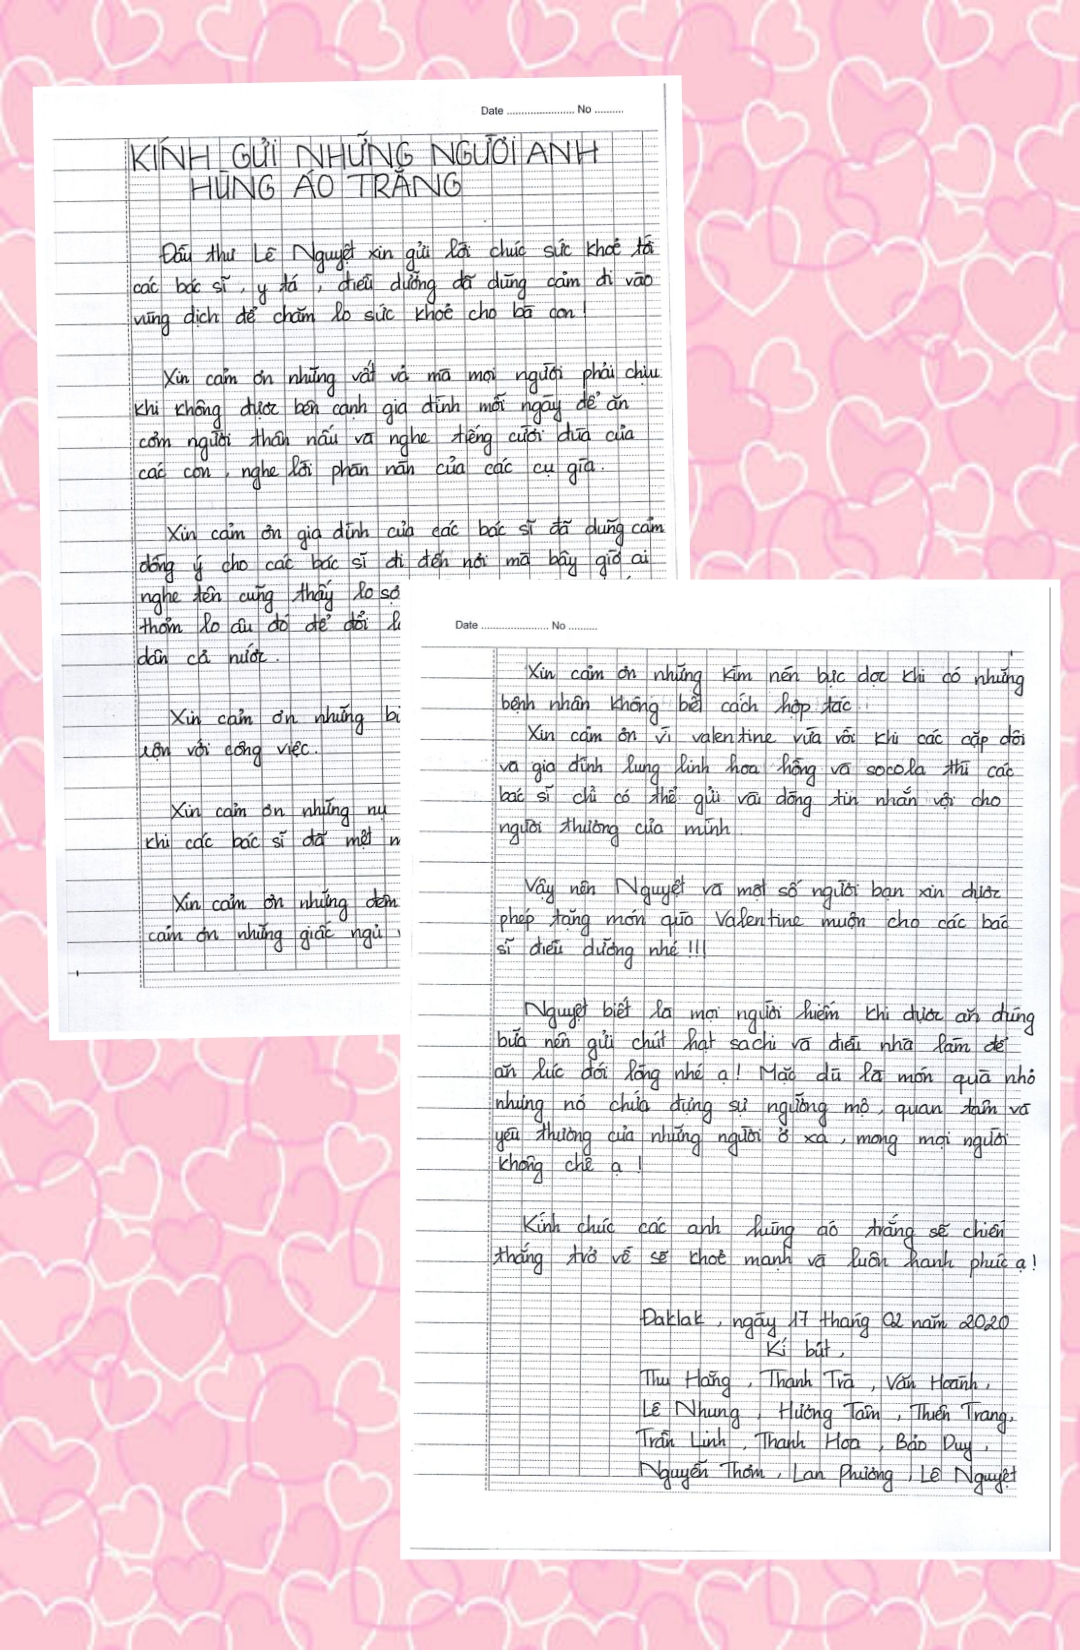 Date ........................ No ..........
KÍNH GỬI NHỮNG NGƯỜI ANH
HÙNG ÁO TRẮNG
Đầu thư Lê Nguyệt xin gửi lời chúc sức khoẻ tới
các bác sĩ, y tá, điều dưỡng đã dũng cảm đi vào
vùng dịch để chăm lo sức khoẻ cho bà con!
Xin cảm ơn những vất vả mà mọi người phải chịu
khi không được bên cạnh gia đình mỗi ngày để ăn
cơm người thân nấu và nghe tiếng cười đùa của
các con, nghe lời phàn nàn của các cụ già.
Xin cảm ơn gia đình của các bác sĩ đã dũng cảm
đồng ý cho các bác sĩ đi đến nơi mà bây giờ ai
nghe tên cũng thấy lo sợ
thỏm lo âu đó để đổi l
dân cả nước.
Xin cảm ơn những bi
uộn với công việc.
Xin cảm ơn những nụ
khi các bác sĩ đã mệt n
Xin cảm ơn những đêm
cảm ơn những giấc ngủ
Date ........................ No ..........
Xin cảm ơn những kìm nén bực dọc khi có những
bệnh nhân không biết cách hợp tác.
Xin cảm ơn vì valentine vừa rồi khi các cặp đôi
và gia đình lung linh hoa hồng và socola thì các
bác sĩ chỉ có thể gửi vài dòng tin nhắn vội cho
người thương của mình
Vậy nên Nguyệt và một số người bạn xin được
phép tặng món quà Valentine muộn cho các bác
sĩ điều dưỡng nhé!!!
Nguyệt biết là mọi người hiếm khi được ăn đúng
bữa nên gửi chút hạt sachi và điều nhà làm để
ăn lúc đói lòng nhé ạ! Mặc dù là món quà nhỏ
nhưng nó chứa đựng sự ngưỡng mộ, quan tâm và
yêu thương của những người ở xa, mong mọi người
không chê ạ!
Kính chúc các anh hùng áo trắng sẽ chiến
thắng trở về sẽ khoẻ mạnh và luôn hạnh phúc ạ!
Đaklak, ngày 17 tháng 02 năm 2020
Kí bút,
Thu Hằng, Thanh Trà, Văn Hoành,
Lê Nhung, Hương Tâm, Thiên Trang,
Trần Linh, Thanh Hoa, Bảo Duy,
Nguyễn Thơm, Lan Phương, Lê Nguyệt